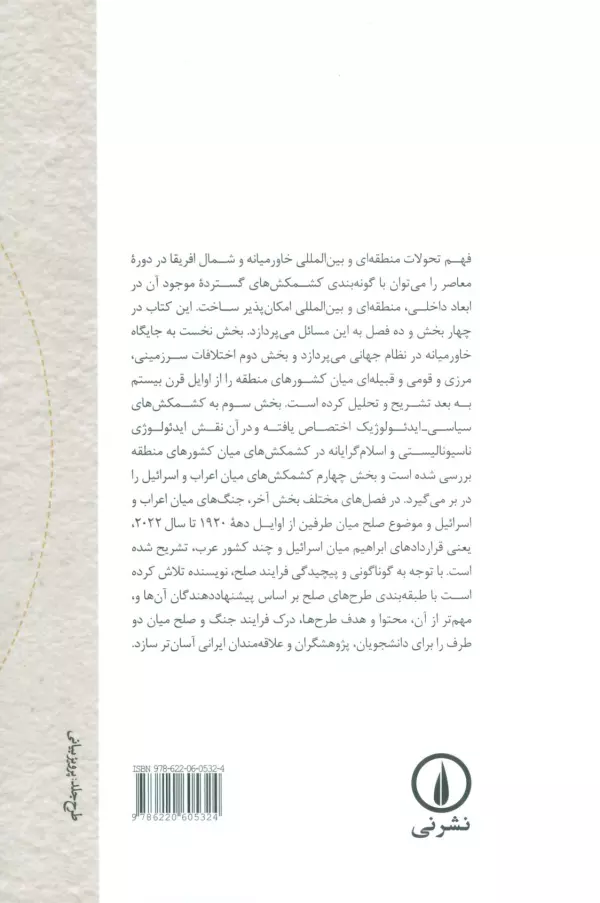 فهم تحولات منطقه‌ای و بین‌المللی خاورمیانه و شمال افریقا در دورهٔ
معاصر را می‌توان با گونه‌بندی کشمکش‌های گستردهٔ موجود آن در
ابعاد داخلی، منطقه‌ای و بین‌المللی امکان‌پذیر ساخت. این کتاب در
چهار بخش و ده فصل به این مسائل می‌پردازد. بخش نخست به جایگاه
خاورمیانه در نظام جهانی می‌پردازد و بخش دوم اختلافات سرزمینی،
مرزی و قومی و قبیله‌ای میان کشورهای منطقه را از اوایل قرن بیستم
به بعد تشریح و تحلیل کرده است. بخش سوم به کشمکش‌های
سیاسی-ایدئولوژیک اختصاص یافته و در آن نقش ایدئولوژی
ناسیونالیستی و اسلام‌گرایانه در کشمکش‌های میان کشورهای منطقه
بررسی شده است و بخش چهارم کشمکش‌های میان اعراب و اسرائیل را
در بر می‌گیرد. در فصل‌های مختلف بخش آخر، جنگ‌های میان اعراب و
اسرائیل و موضوع صلح میان طرفین از اوایل دههٔ ۱۹۲۰ تا سال ۲۰۲۲،
یعنی قراردادهای ابراهیم میان اسرائیل و چند کشور عرب، تشریح شده
است. با توجه به گوناگونی و پیچیدگی فرایند صلح، نویسنده تلاش کرده
است با طبقه‌بندی طرح‌های صلح بر اساس پیشنهاددهندگان آن‌ها و،
مهم‌تر از آن، محتوا و هدف طرح‌ها، درک فرایند جنگ و صلح میان دو
طرف را برای دانشجویان، پژوهشگران و علاقه‌مندان ایرانی آسان‌تر سازد.
طرح جلد: پرویز بیانی
ISBN 978-622-06-0532-4
9 786220 605324
نشرنی